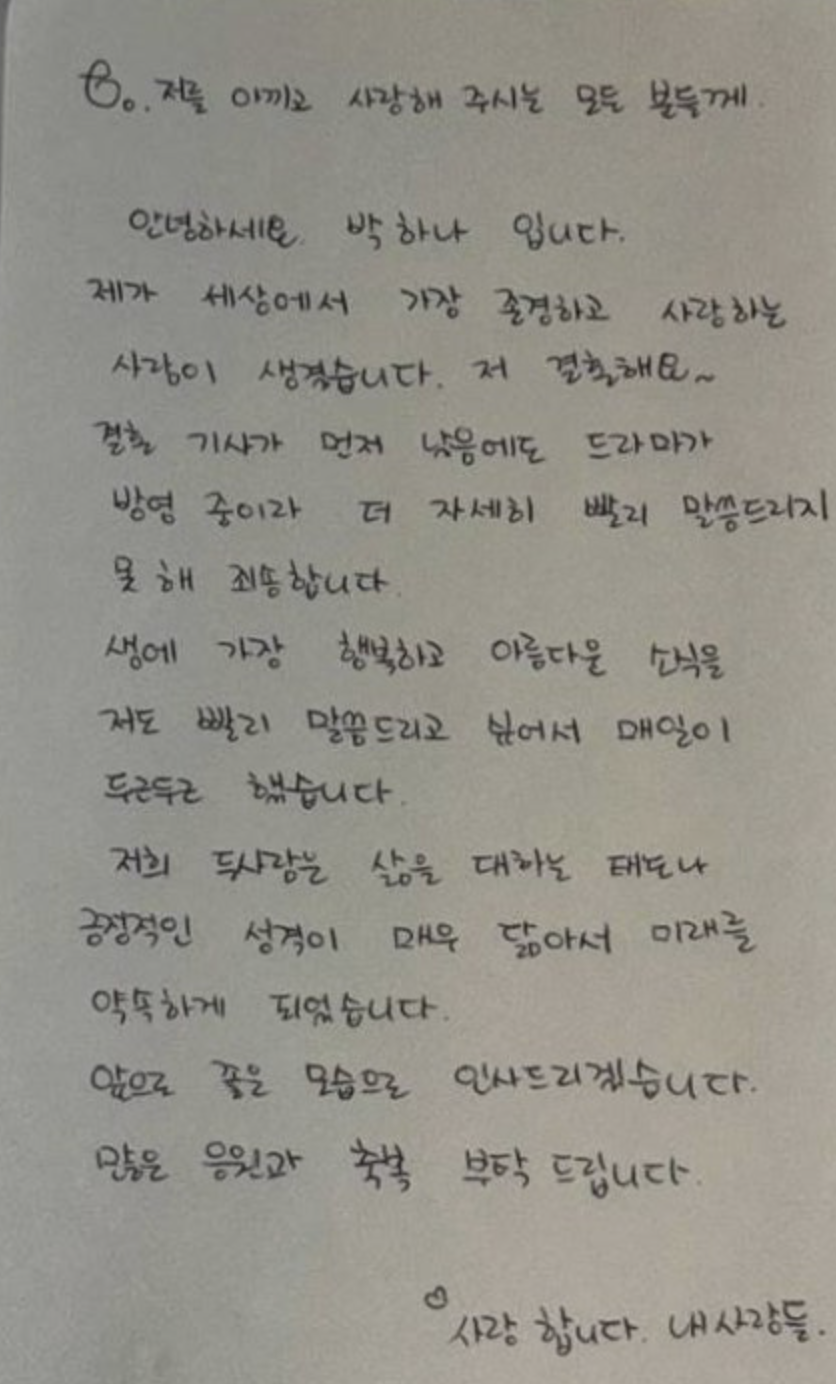 To. 저를 아끼고 사랑해 주시는 모든 분들께.
안녕하세요. 박하나 입니다.
제가 세상에서 가장 존경하고 사랑하는
사람이 생겼습니다. 저 결혼해요~
결혼 기사가 먼저 났음에도 드라마가
방영 중이라 더 자세히 빨리 말씀드리지
못 해 죄송합니다.
생에 가장 행복하고 아름다운 소식을
저도 빨리 말씀드리고 싶어서 매일이
두근두근 했습니다.
저희 두사람은 삶을 대하는 태도나
긍정적인 성격이 매우 닮아서 미래를
약속하게 되었습니다.
앞으로 좋은 모습으로 인사드리겠습니다.
많은 응원과 축복 부탁 드립니다.
사랑 합니다. 내사랑들.